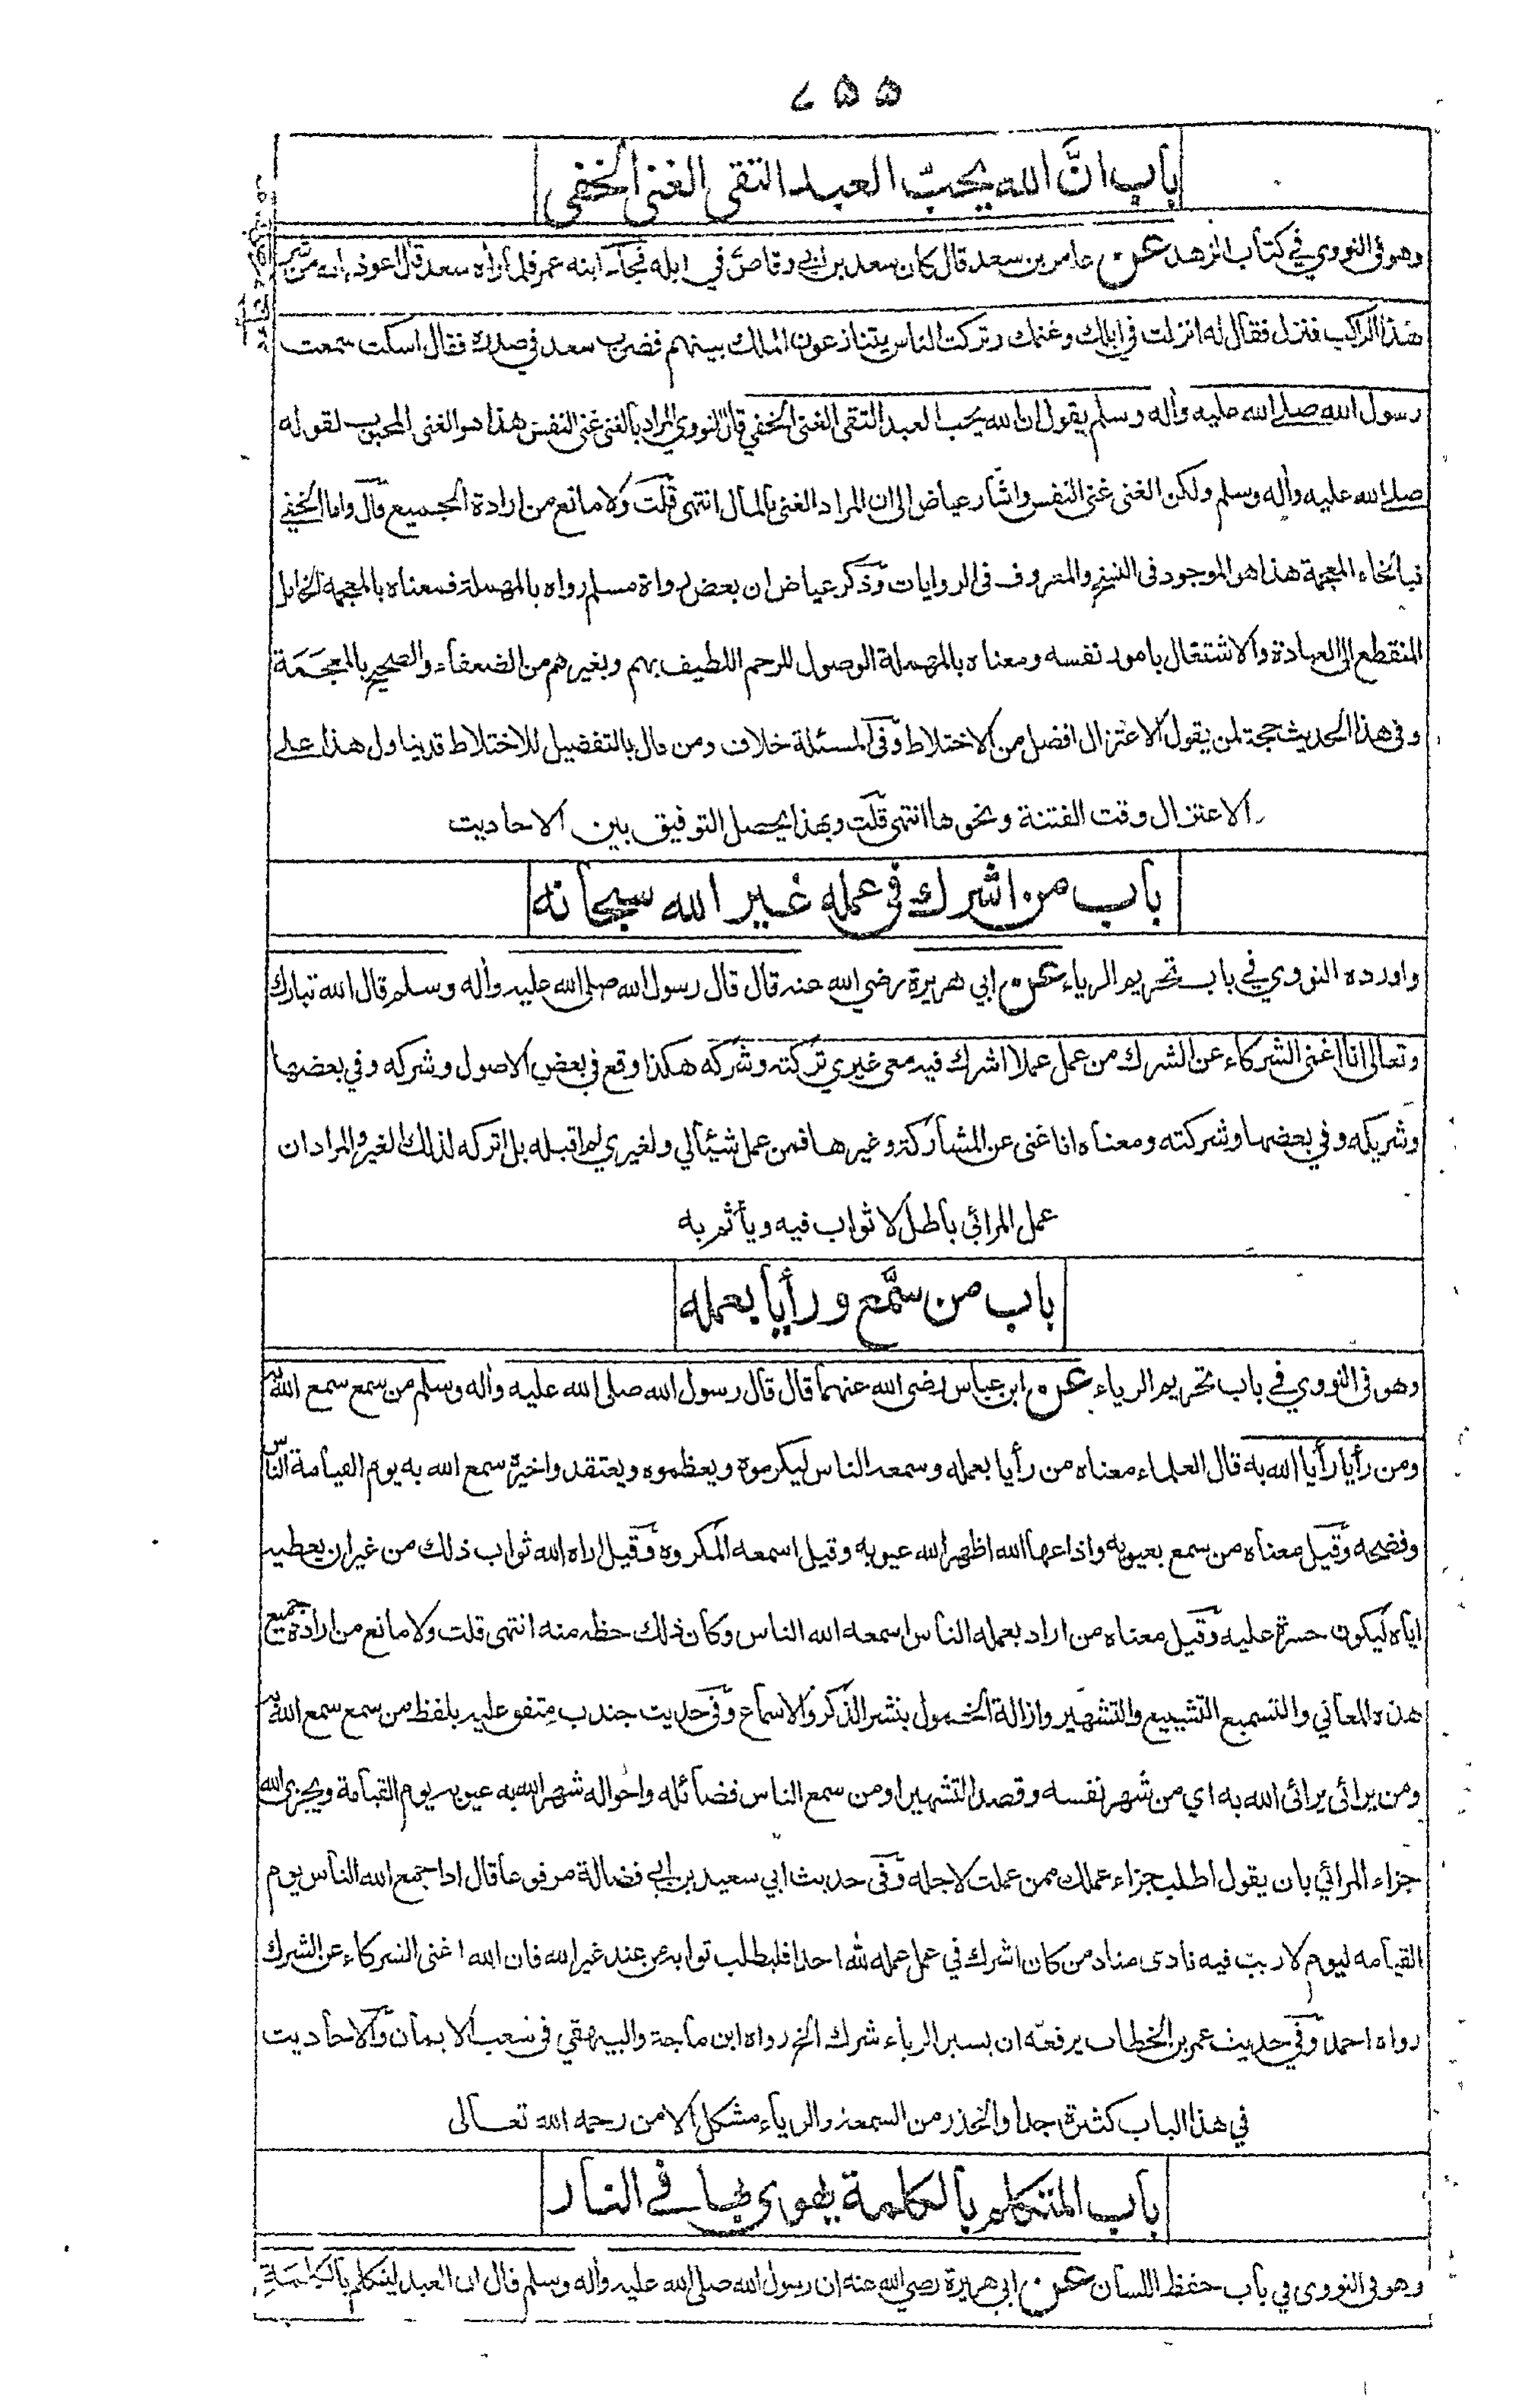 ٥٥٧
باب ان الله يحب العبد التقى الغنى الخفى
وهو فى النووي في كتاب الزهد عن عامر بن سعد قال كان سعد بن ابي وقاص في ابله فجاءه ابنه عمر فلما راه سعد قال اعوذ بالله من شر
هذا الراكب فنزل فقال له انزلت في ابلك وغنمك وتركت الناس يتنازعون الملك بينهم فضرب سعد في صدره فقال اسكت سمعت
رسول الله صلے الله عليه وأله وسلم يقول ان الله يحب العبد التقى الغنى الخفي قال النووي المراد بالغنى غنى النفس هذا هو الغنى المحبوب لقوله
صلے الله عليه وأله وسلم ولكن الغنى غنى النفس واشار عياض الى ان المراد الغنى بالمال انتهى قلت ولا مانع من ارادة الجميع قال واما الخفي
فبالخاء المعجمة هذا هو الموجود فى النسخ والمعروف فى الروايات وذكر عياض ان بعض رواة مسلم رواه بالمهملة فمعناه بالمعجمة الخامل
المنقطع الى العبادة والاشتغال بامور نفسه ومعناه بالمهملة الوصول للرحم اللطيف بهم وبغيرهم من الضعفاء والصحيح بالمعجمة
وفى هذا الحديث حجة لمن يقول الاعتزال افضل من الاختلاط وفى المسئلة خلاف ومن قال بالتفضيل للاختلاط قد يتاول هذا على
الاعتزال وقت الفتنة ونحوها انتهى قلت وبهذا يحصل التوفيق بين الاحاديث
باب من اشرك فى عمله غير الله سبحانه
واورده النووي في باب تحريم الرياء عن ابي هريرة رضي الله عنه قال قال رسول الله صلى الله عليه وأله وسلم قال الله تبارك
وتعالى انا اغنى الشركاء عن الشرك من عمل عملا اشرك فيه معى غيري تركته وشركه هكذا وقع في بعض الاصول وشركه وفي بعضها
وشريكه وفي بعضها وشركته ومعناه انا غنى عن المشاركة وغيرها فمن عمل شيئا لي ولغيري لم اقبله بل اتركه لذلك الغير والمراد ان
عمل المرائي باطل لا ثواب فيه ويأثم به
باب من سمّع ورأيا بعمله
وهو فى النووي في باب تحريم الرياء عن ابن عباس رضى الله عنهما قال قال رسول الله صلى الله عليه وأله وسلم من سمع سمع الله به
ومن رأيا رأيا الله به قال العلماء معناه من رأيا بعمله وسمعه الناس ليكرموه ويعظموه ويعتقدوا خيره سمع الله به يوم القيامة الناس
وفضحه وقيل معناه من سمع بعيوبه واذاعها الله اظهر الله عيوبه وقيل اسمعه المكروه وقيل اراه الله ثواب ذلك من غير ان يعطيه
اياه ليكون حسرة عليه وقيل معناه من اراد بعمله الناس اسمعه الله الناس وكان ذلك حظه منه انتهى قلت ولا مانع من ارادة جميع
هذه المعاني والتسميع التشييع والتشهير وازالة الخمول بنشر الذكر والاسماع وفى حديث جندب متفق عليه بلفظ من سمع سمع الله به
ومن يرائى يرائى الله به اي من شهر نفسه وقصد التشهير او من سمع الناس فضائله واحواله شهر الله به عيوبه يوم القيامة ويجزى الله
جزاء المرائي بان يقول اطلب جزاء عملك ممن عملت لاجله وفى حديث ابي سعيد بن ابي فضالة مرفوعا قال اذا جمع الله الناس يوم
القيامه ليوم لا ريب فيه نادى مناد من كان اشرك في عمل عمله لله احدا فليطلب ثوابه من عند غير الله فان الله اغنى الشركاء عن الشرك
رواه احمد وفي حديث عمر بن الخطاب يرفعه ان يسير الرياء شرك الخ رواه ابن ماجة والبيهقي فى شعب الايمان والاحاديث
في هذا الباب كثيرة جدا والحذر من السمعة والرياء مشكل الا من رحمه الله تعالى
باب المتكلم بالكلمة يهوي بها في النار
وهو فى النووى في باب حفظ اللسان عن ابي هريرة رضي الله عنه ان رسول الله صلى الله عليه وأله وسلم قال ان العبد ليتكلم بالكلمة